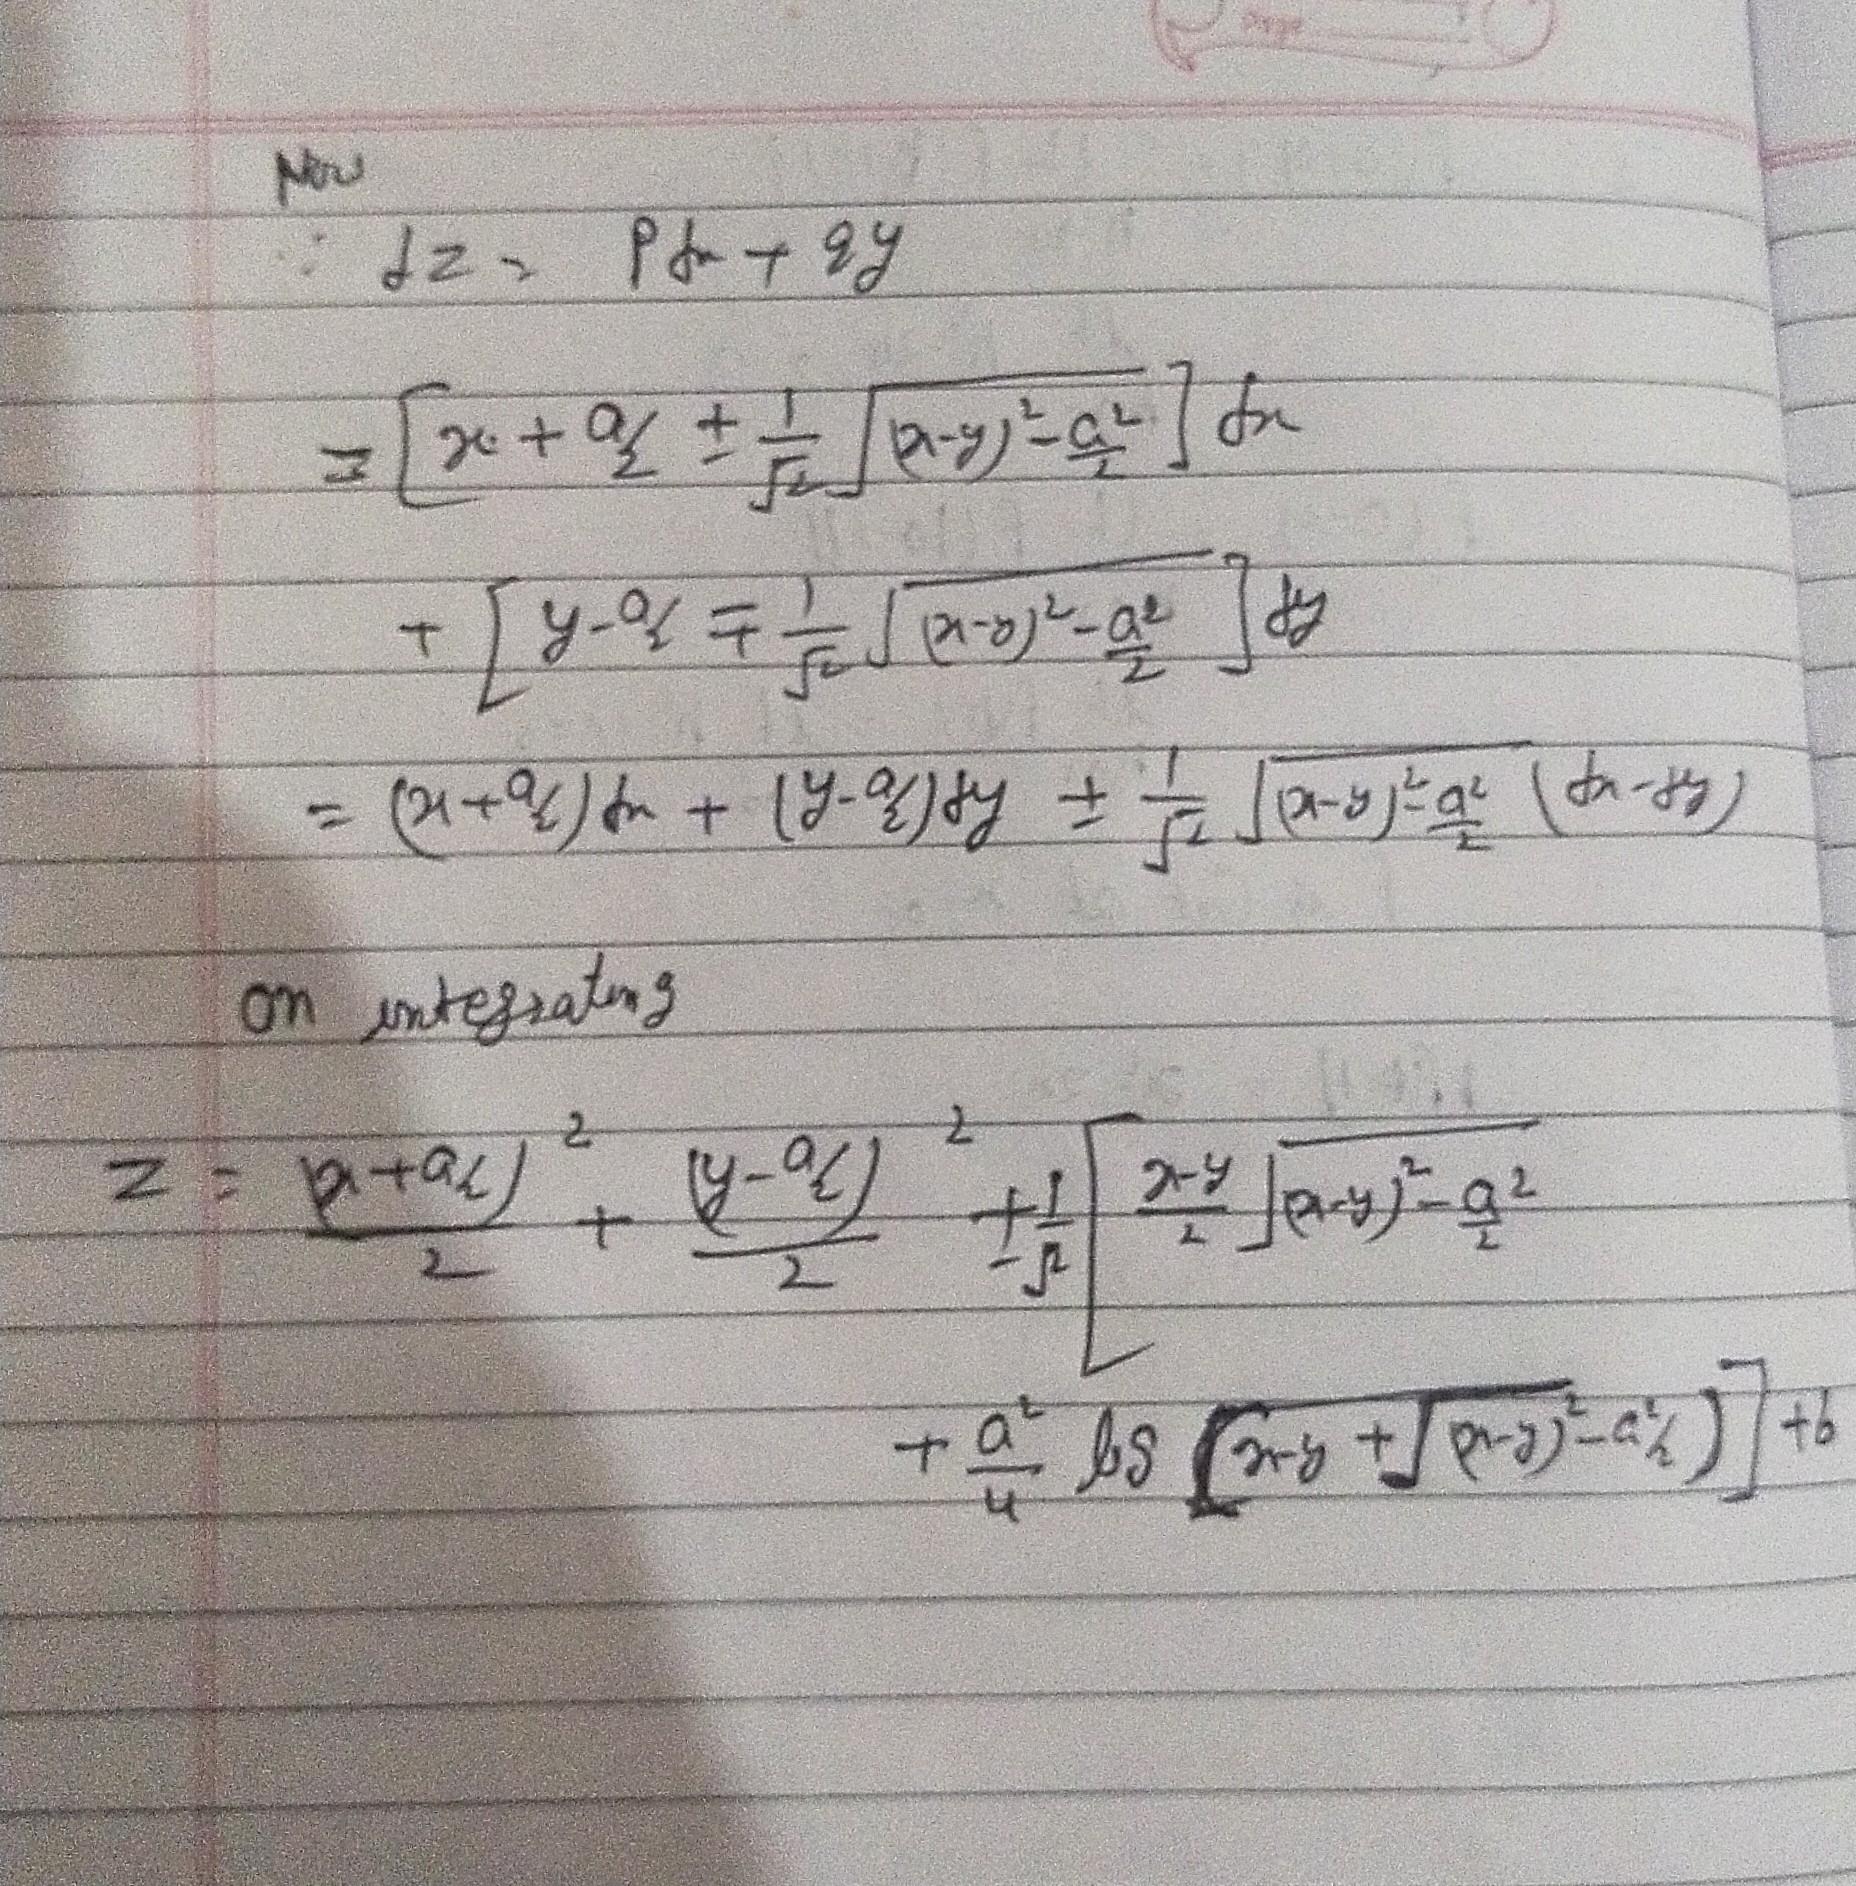 Now
∴ dz = Pdx + qy
= [x + a/2 ± 1/√2 √(x-y)² - a²/2] dx
+ [y - a/2 ∓ 1/√2 √(x-y)² - a²/2] dy
= (x + a/2)dx + (y - a/2)dy ± 1/√2 √(x-y)² - a²/2 (dx - dy)
On integrating
z = (x + a/2)²/2 + (y - a/2)²/2 ± 1/√2 [x-y/2 √(x-y)² - a²/2
+ a²/4 log (x-y + √(x-y)² - a²/2)] + b